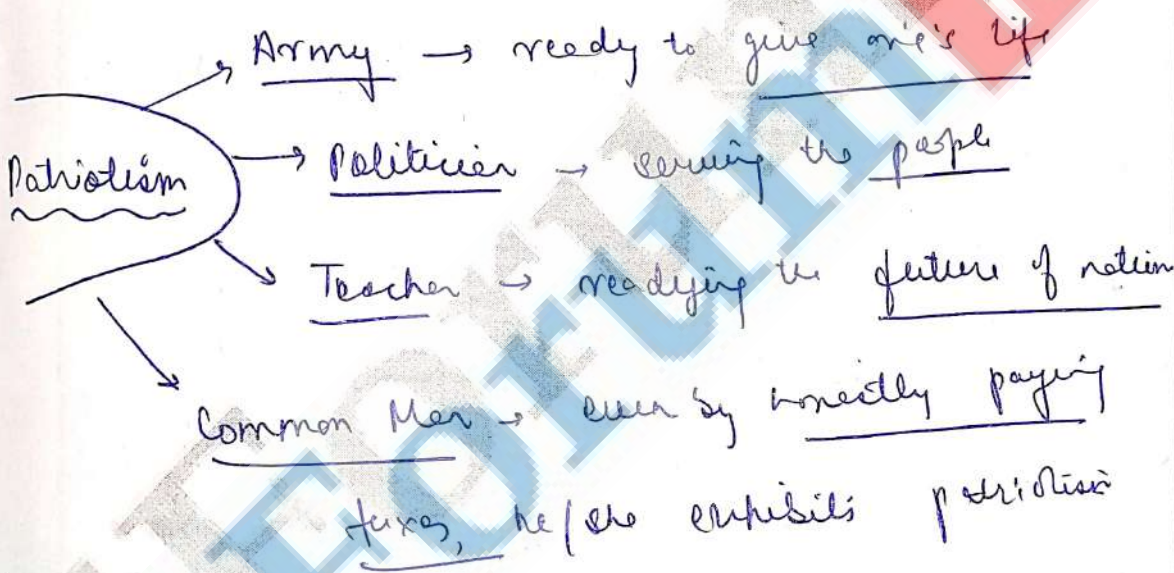 Army → ready to give one's life
Patriotism
Politician → serving the people
Teacher → readying the future of nation
Common Man → even by honestly paying
taxes, he/she exhibits patriotism
Forum